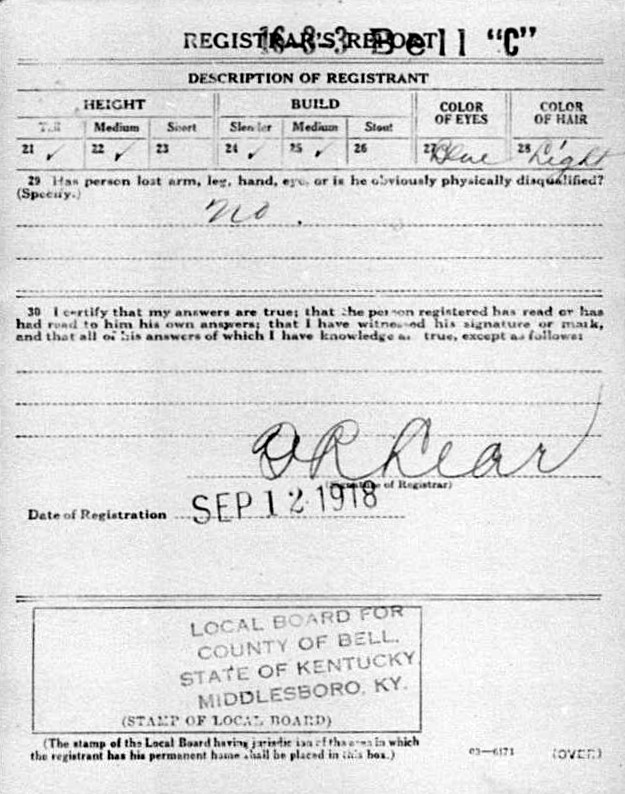 REGISTRAR'S REPORT
16-3-3 Bell "C"
DESCRIPTION OF REGISTRANT
HEIGHT BUILD COLOR OF EYES COLOR OF HAIR
Tall Medium Short Slender Medium Stout
21 ✓ 22 ✓ 23 24 ✓ 25 ✓ 26 27 Blue 28 Light
29 Has person lost arm, leg, hand, eye, or is he obviously physically disqualified?
(Specify.)
no.
30 I certify that my answers are true; that the person registered has read or has
had read to him his own answers; that I have witnessed his signature or mark,
and that all of his answers of which I have knowledge are true, except as follows:
R Lear
(Signature of Registrar)
Date of Registration SEP 12 1918
LOCAL BOARD FOR
COUNTY OF BELL,
STATE OF KENTUCKY,
MIDDLESBORO, KY.
(STAMP OF LOCAL BOARD)
(The stamp of the Local Board having jurisdiction of the area in which
the registrant has his permanent home shall be placed in this box.)
03—6171 (OVER)